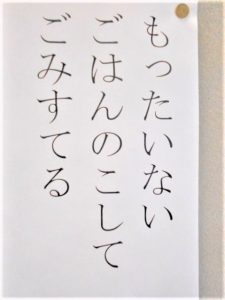 もったいない
ごはんのこして
ごみすてる